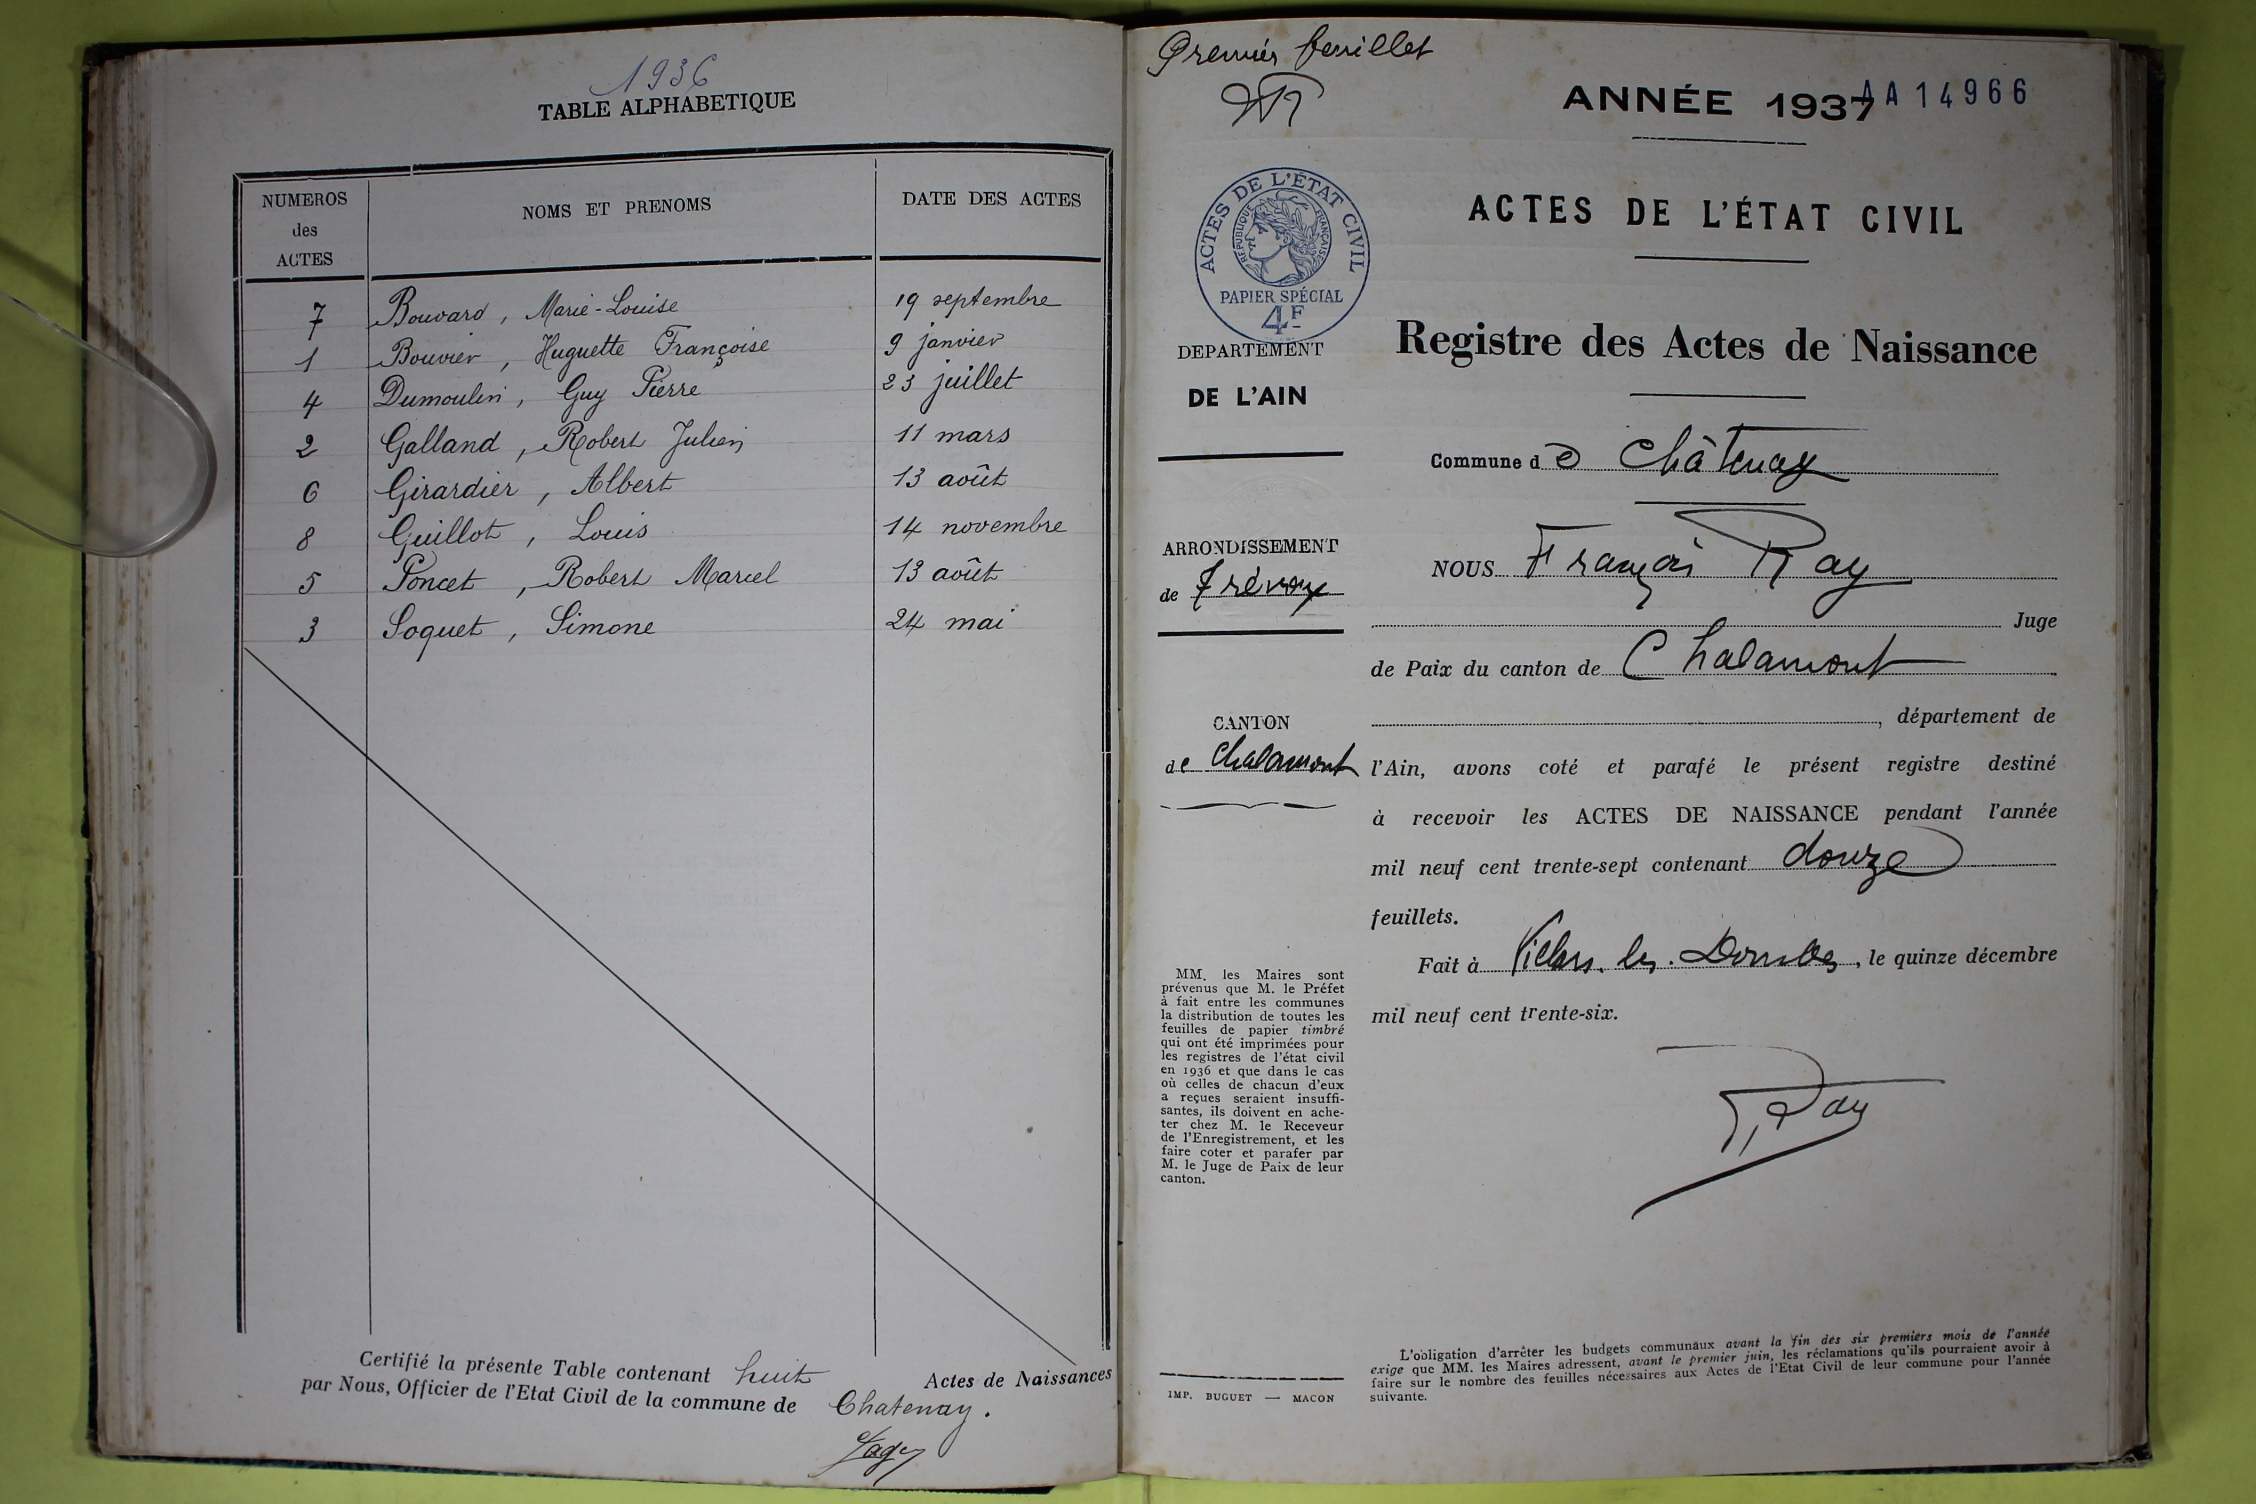 1936
TABLE ALPHABETIQUE
NUMEROS des ACTES
NOMS ET PRENOMS
DATE DES ACTES
7 Bouvard, Marie-Louise 19 septembre
1 Bouvier, Huguette Françoise 9 janvier
4 Dumoulin, Guy Pierre 23 juillet
2 Galland, Robert Julien 11 mars
6 Girardier, Albert 13 août
8 Guillot, Louis 14 novembre
5 Poncet, Robert Marcel 13 août
3 Soquet, Simone 24 mai
Certifié la présente Table contenant huit Actes de Naissances
par Nous, Officier de l'Etat Civil de la commune de Chatenay.
Premier feuillet
ANNÉE 1937
AA 14966
ACTES DE L'ÉTAT CIVIL
RÉPUBLIQUE FRANÇAISE
PAPIER SPÉCIAL
4F
DEPARTEMENT
DE L'AIN
ARRONDISSEMENT
de Trévoux
CANTON
de Chalamont
MM. les Maires sont
prévenus que M. le Préfet
à fait entre les communes
la distribution de toutes les
feuilles de papier timbré
qui ont été imprimées pour
les registres de l'état civil
en 1936 et que dans le cas
où celles de chacun d'eux
a reçues seraient insuffi-
santes, ils doivent en ache-
ter chez M. le Receveur
de l'Enregistrement, et les
faire coter et parafer par
M. le Juge de Paix de leur
canton.
IMP. BUGUET — MACON
ACTES DE L'ÉTAT CIVIL
Registre des Actes de Naissance
Commune de Châtenay
NOUS François Ray
Juge
de Paix du canton de Chalamont
, département de
l'Ain, avons coté et parafé le présent registre destiné
à recevoir les ACTES DE NAISSANCE pendant l'année
mil neuf cent trente-sept contenant douze
feuillets.
Fait à Villars-les-Dombes, le quinze décembre
mil neuf cent trente-six.
Ray
L'obligation d'arrêter les budgets communaux avant la fin des six premiers mois de l'année
exige que MM. les Maires adressent, avant le premier juin, les réclamations qu'ils pourraient avoir à
faire sur le nombre des feuilles nécessaires aux Actes de l'Etat Civil de leur commune pour l'année
suivante.